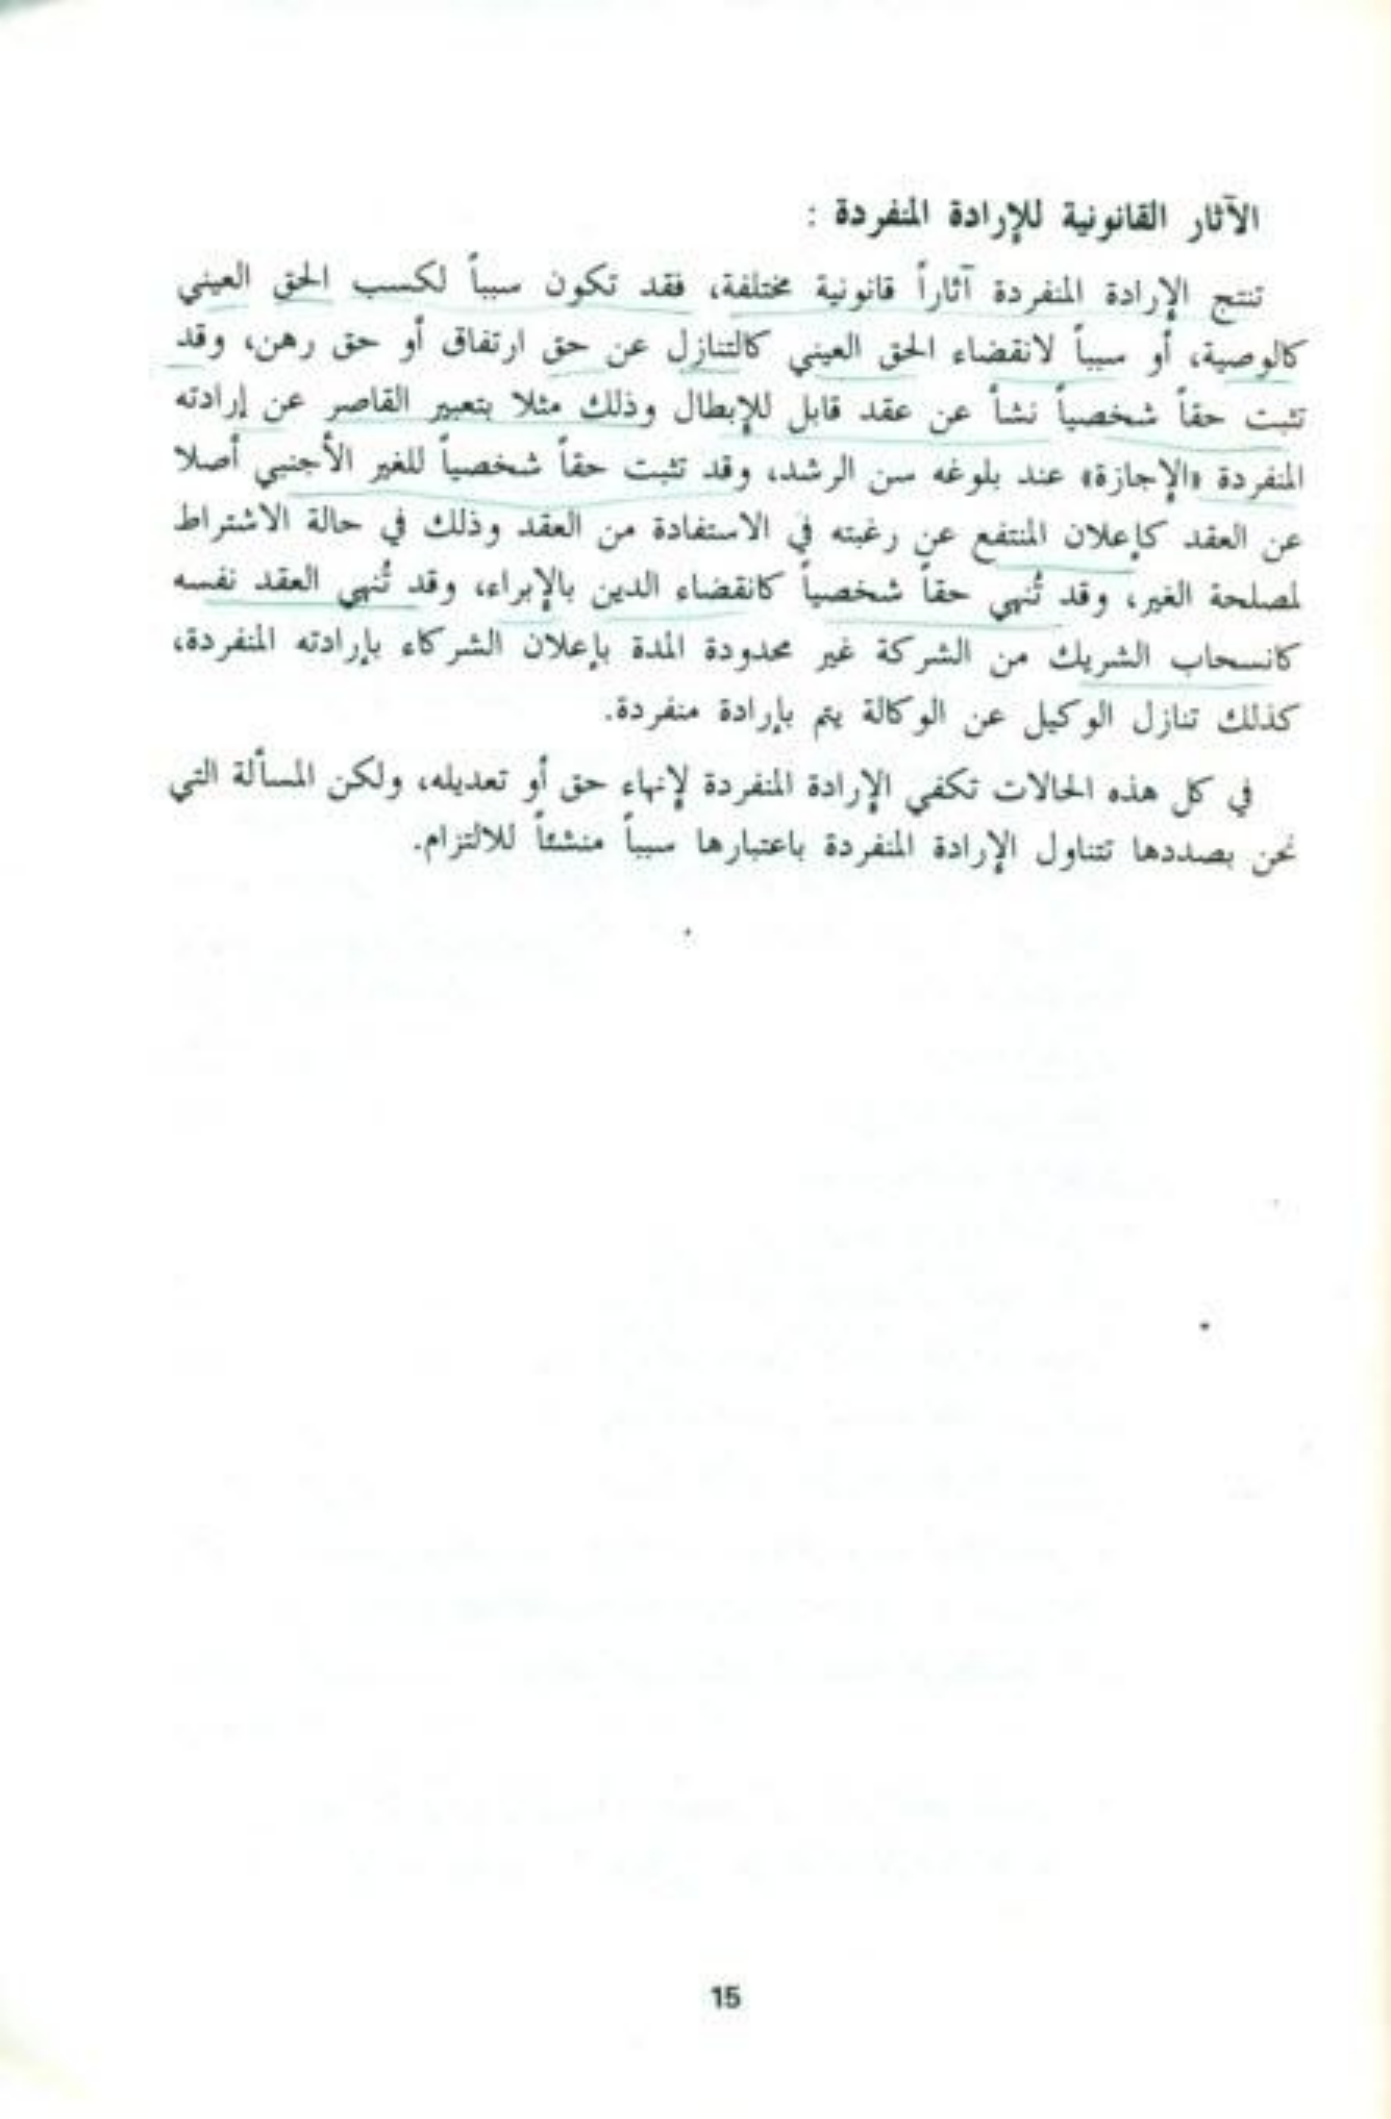 الآثار القانونية للإرادة المنفردة :
تنتج الإرادة المنفردة آثاراً قانونية مختلفة، فقد تكون سبباً لكسب الحق العيني
كالوصية، أو سبباً لانقضاء الحق العيني كالتنازل عن حق ارتفاق أو حق رهن، وقد
تثبت حقاً شخصياً نشأ عن عقد قابل للإبطال وذلك مثلا بتعبير القاصر عن إرادته
المنفردة «الإجازة» عند بلوغه سن الرشد، وقد تثبت حقاً شخصياً للغير الأجنبي أصلا
عن العقد كإعلان المنتفع عن رغبته في الاستفادة من العقد وذلك في حالة الاشتراط
لمصلحة الغير، وقد تُنهي حقاً شخصياً كانقضاء الدين بالإبراء، وقد تُنهي العقد نفسه
كانسحاب الشريك من الشركة غير محدودة المدة بإعلان الشركاء بإرادته المنفردة،
كذلك تنازل الوكيل عن الوكالة يتم بإرادة منفردة.
في كل هذه الحالات تكفي الإرادة المنفردة لإنهاء حق أو تعديله، ولكن المسألة التي
نحن بصددها تتناول الإرادة المنفردة باعتبارها سبباً منشئاً للالتزام.
15